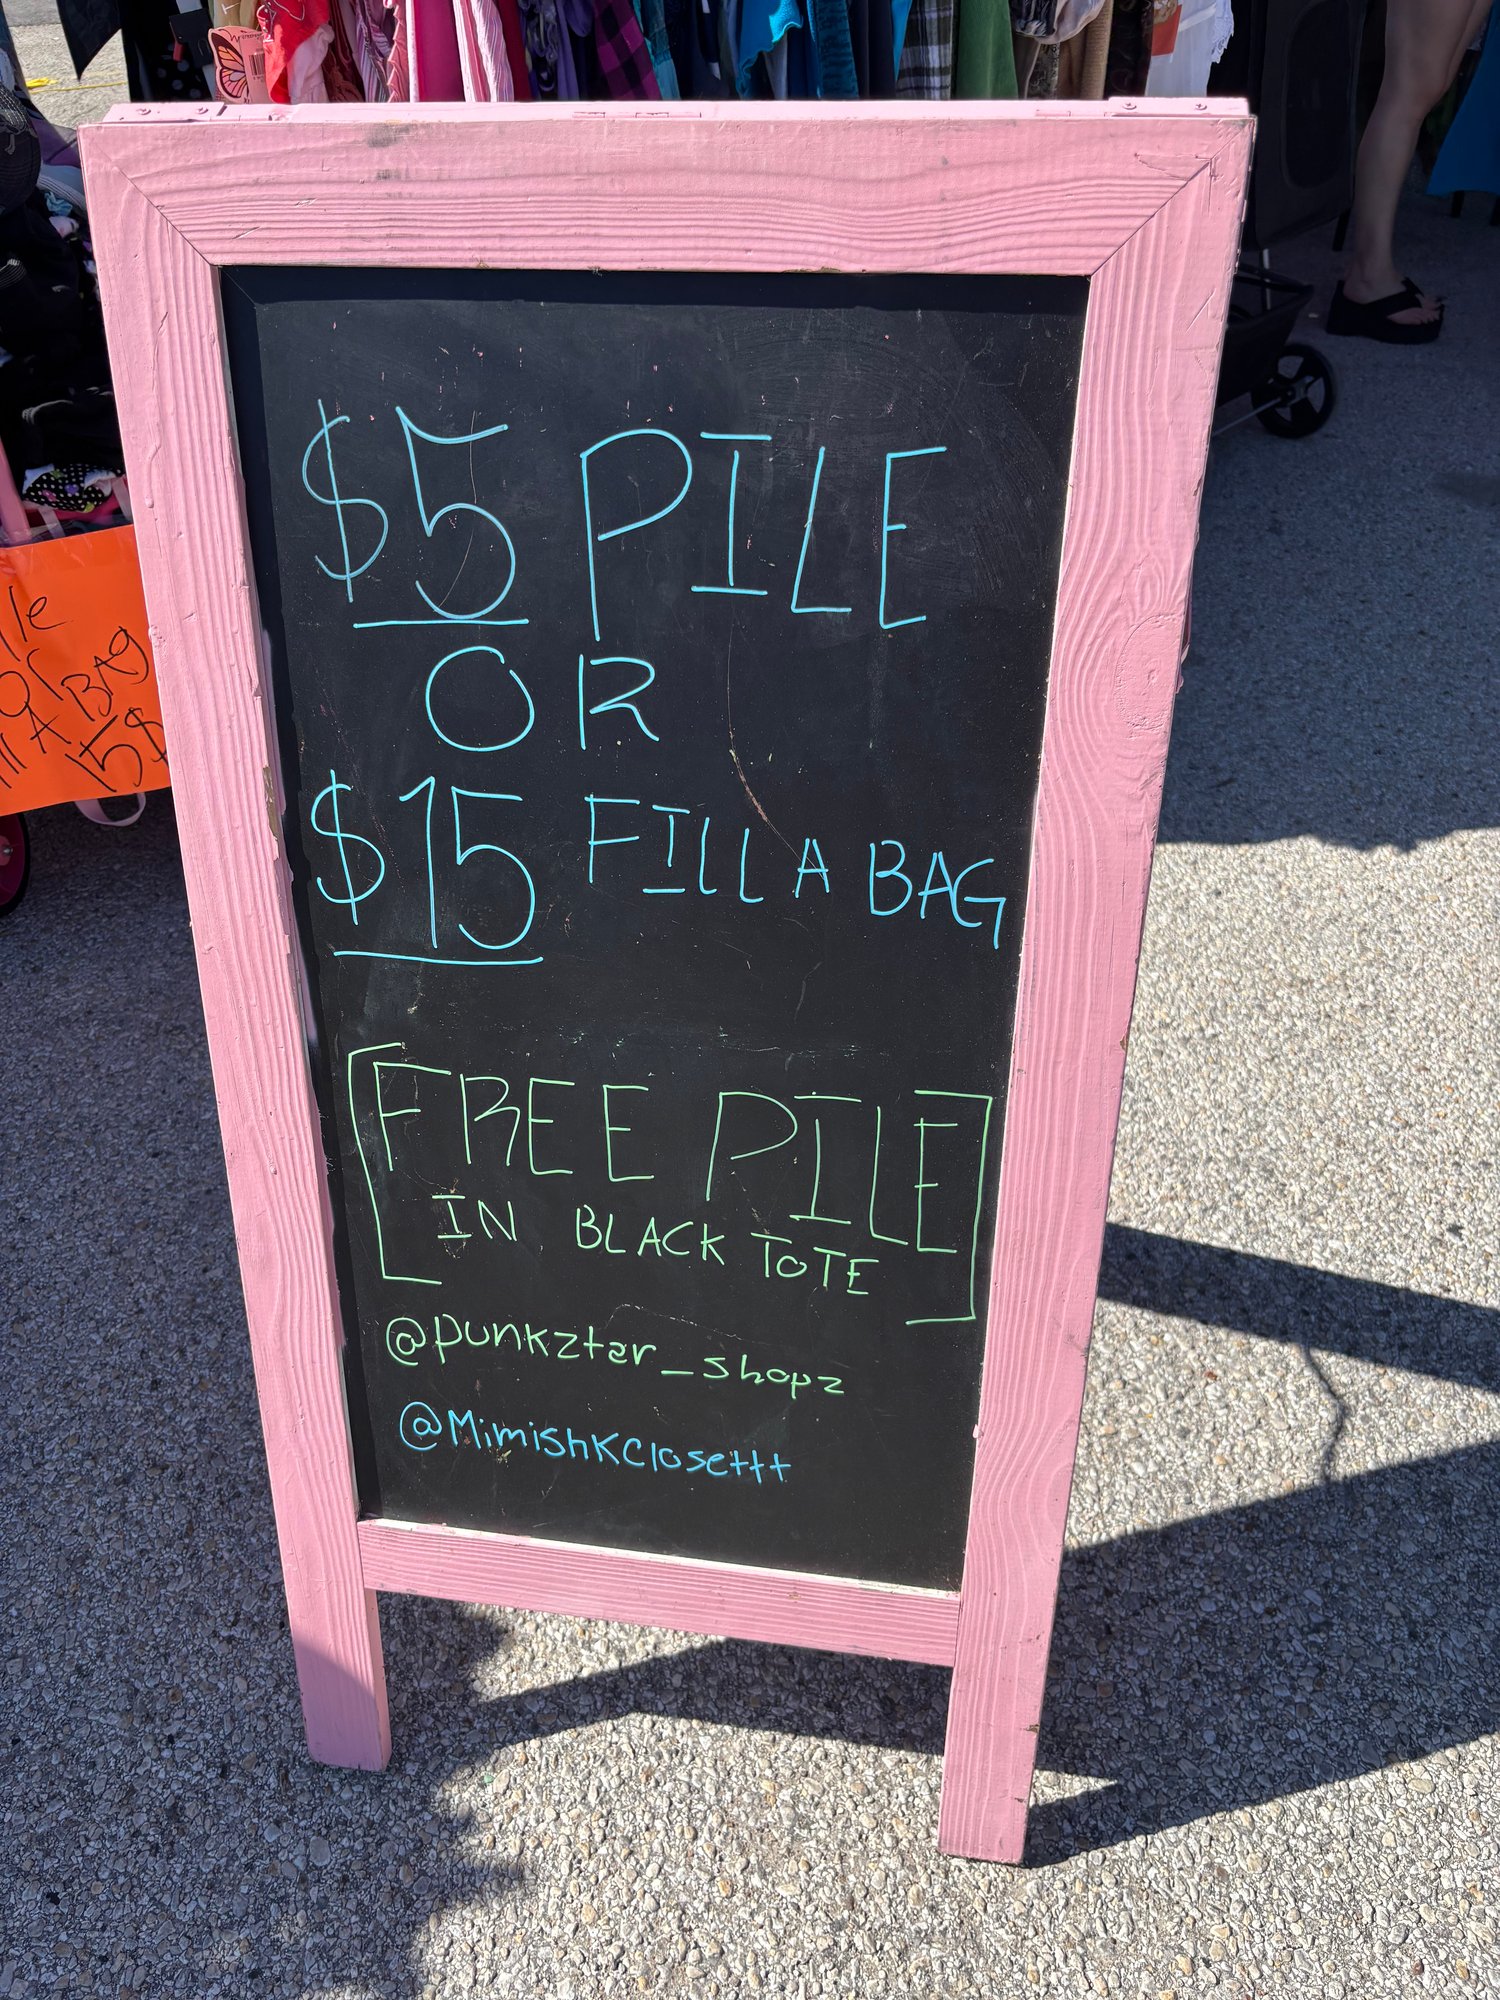 $5 PILE
OR
$15 FILL A BAG
[FREE PILE]
IN BLACK TOTE
@punkztar_shopz
@MimishKClosettt
or
A BAG
15$